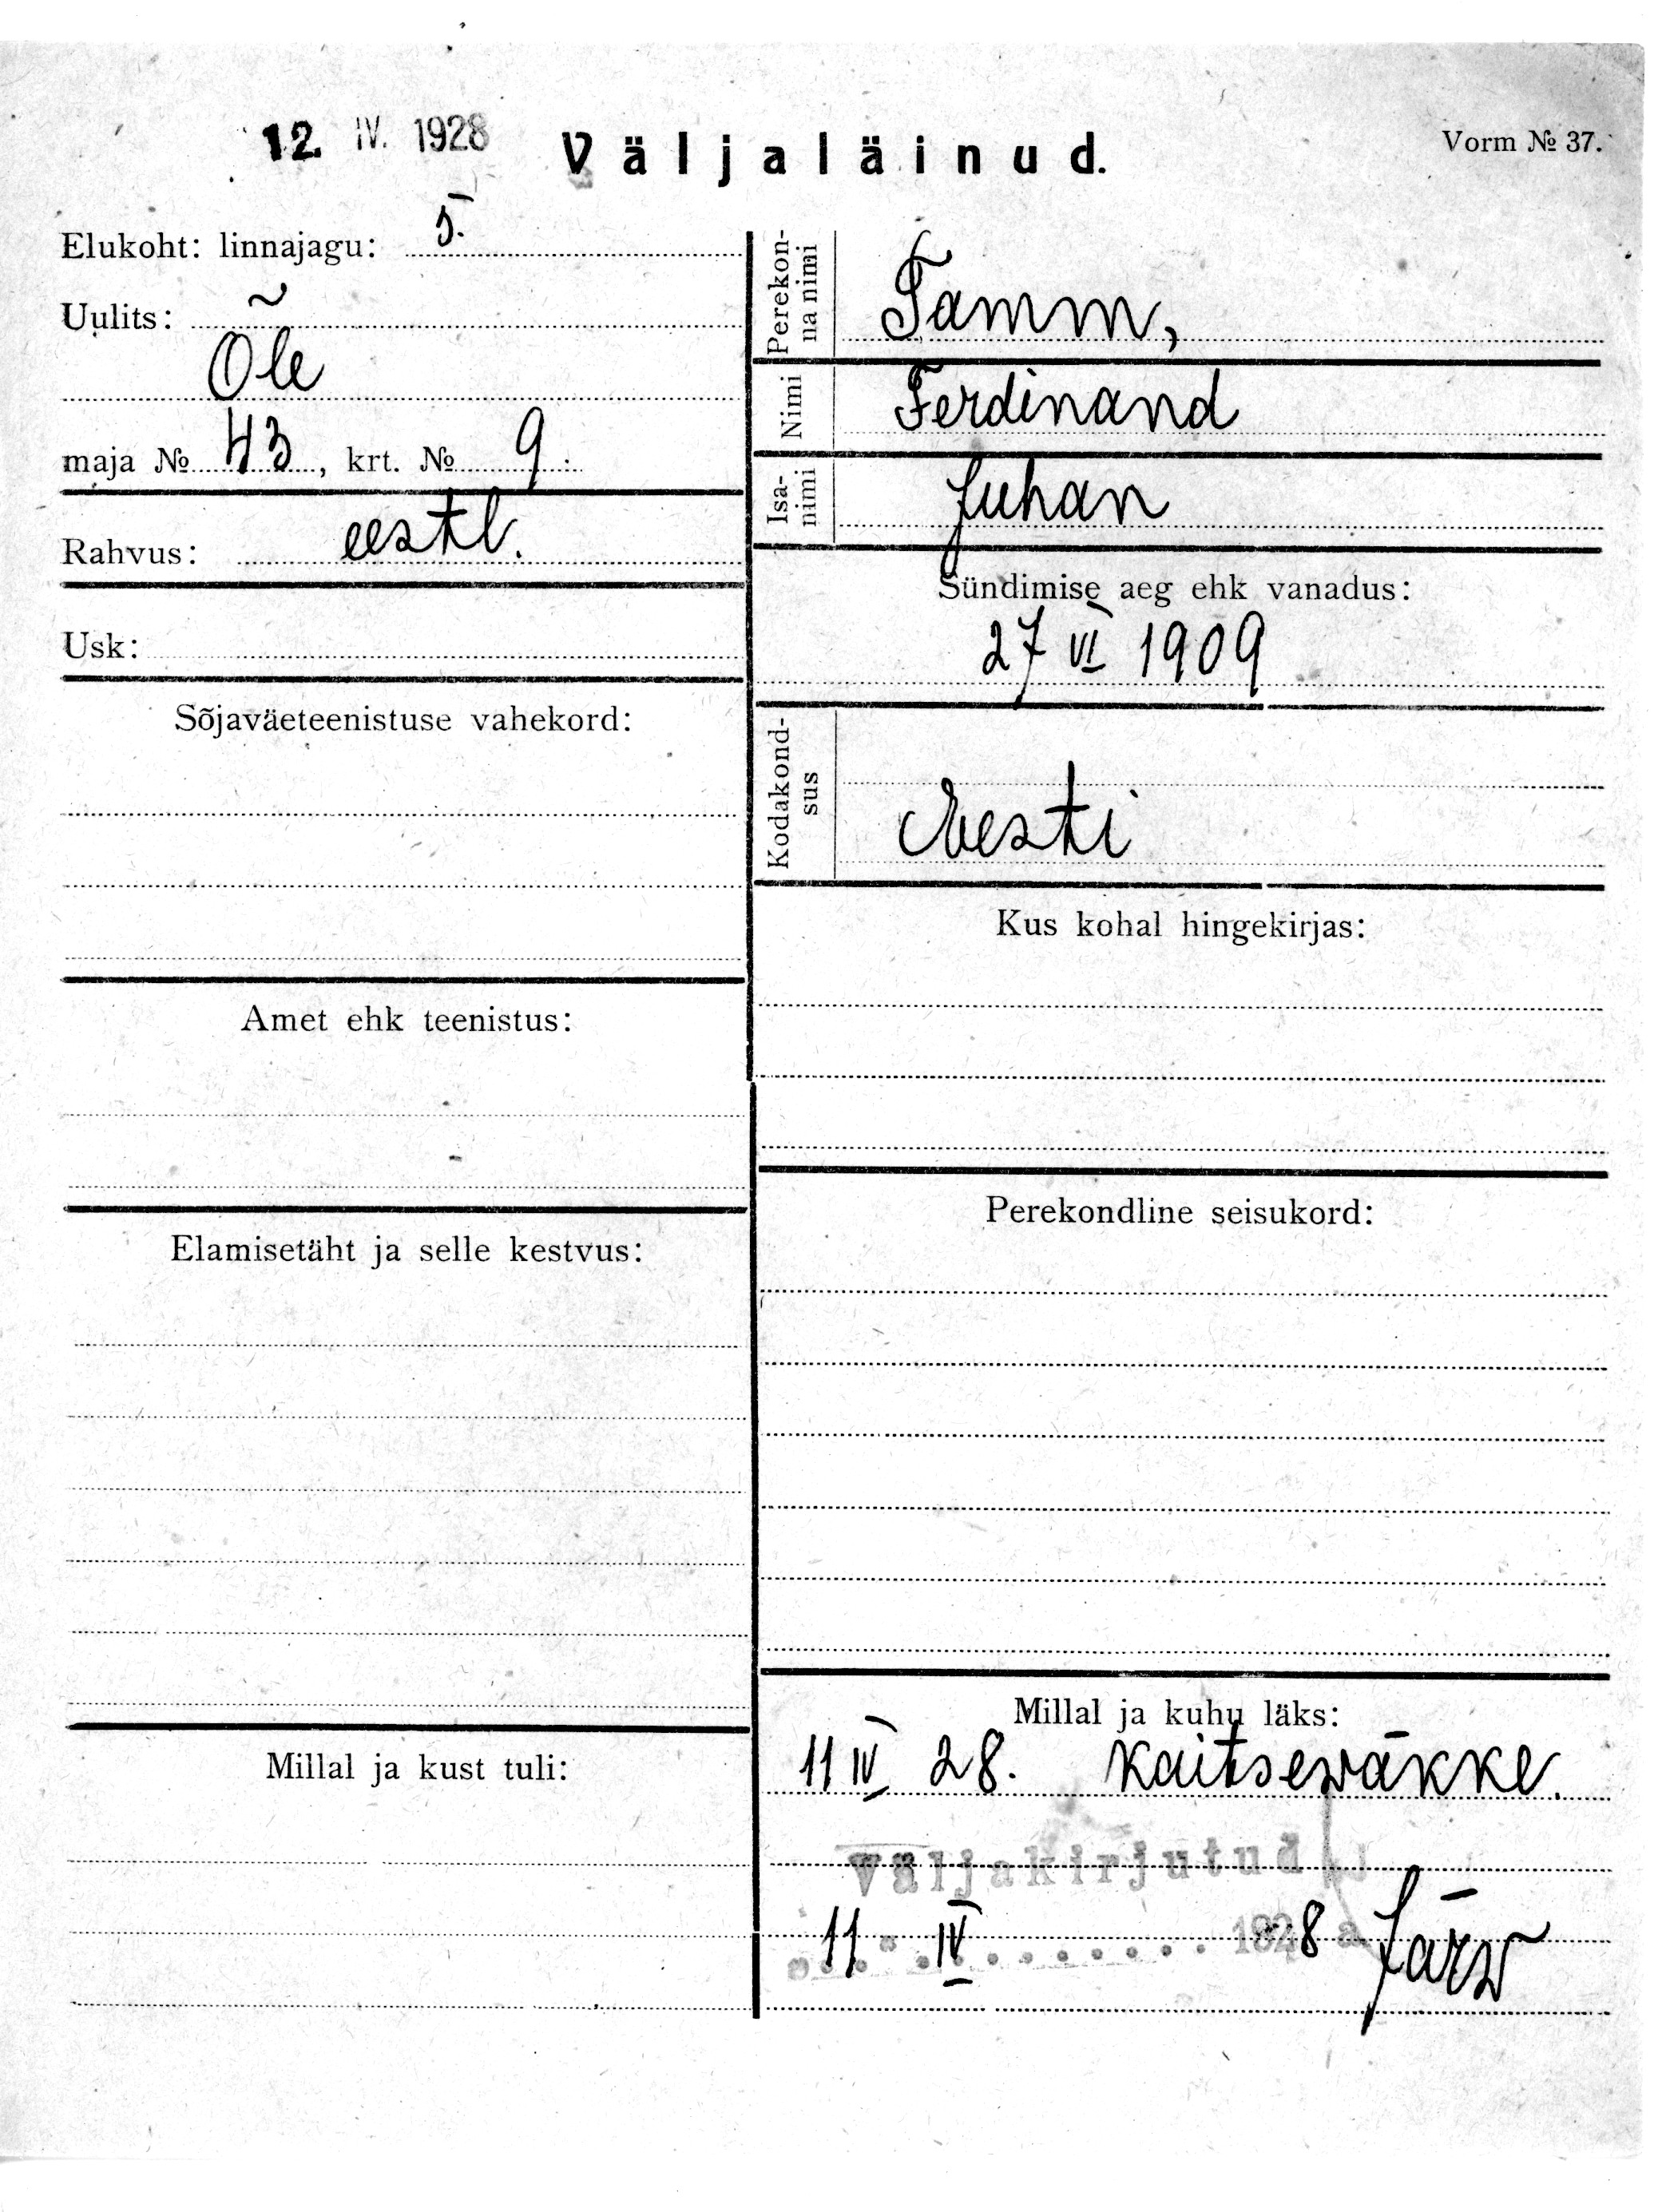 12. IV. 1928
Väljaläinud.
Vorm № 37.
Elukoht: linnajagu: 5.
Uulits:
Õle
maja № 43, krt. № 9.
Rahvus: eestl.
Usk:
Sõjaväeteenistuse vahekord:
Amet ehk teenistus:
Elamisetäht ja selle kestvus:
Millal ja kust tuli:
Perekon-
na nimi
Tamm,
Nimi
Ferdinand
Isa-
nimi
Juhan
Sündimise aeg ehk vanadus:
27 VI 1909
Kodakond-
sus
Eesti
Kus kohal hingekirjas:
Perekondline seisukord:
Millal ja kuhu läks:
11 IV 28. Kaitsewäkke.
Väljakirjutud
11 " IV 1928 a Järw